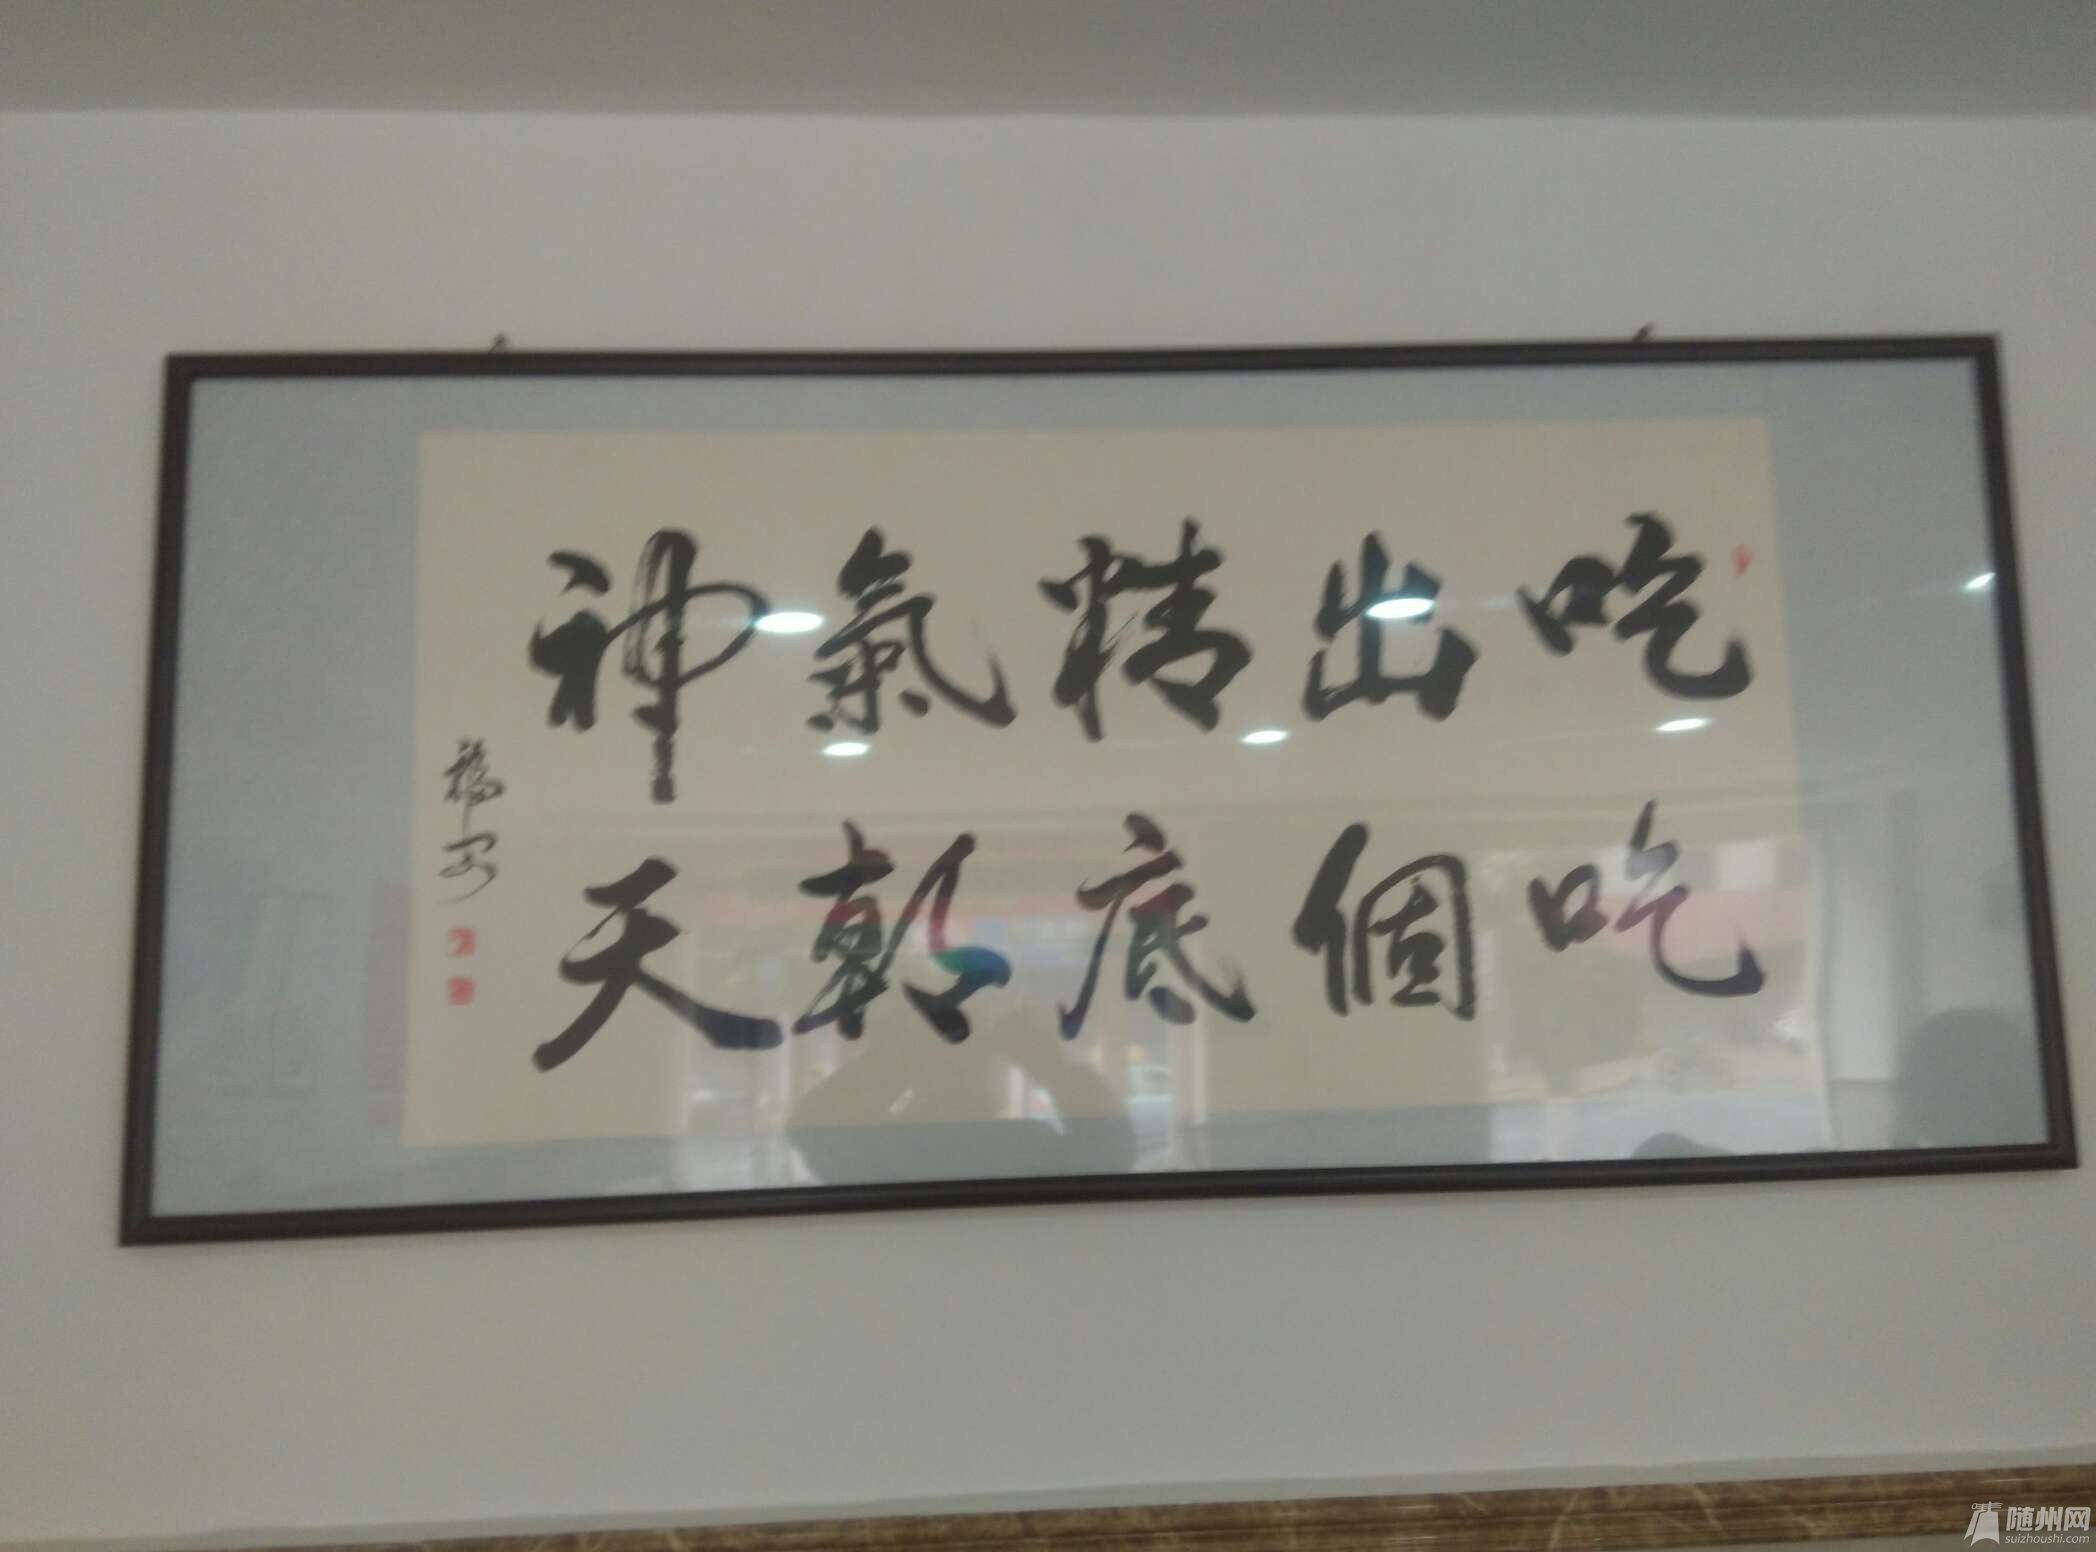 吃出精氣神
吃個底朝天
福安
随州网
suizhoushi.com